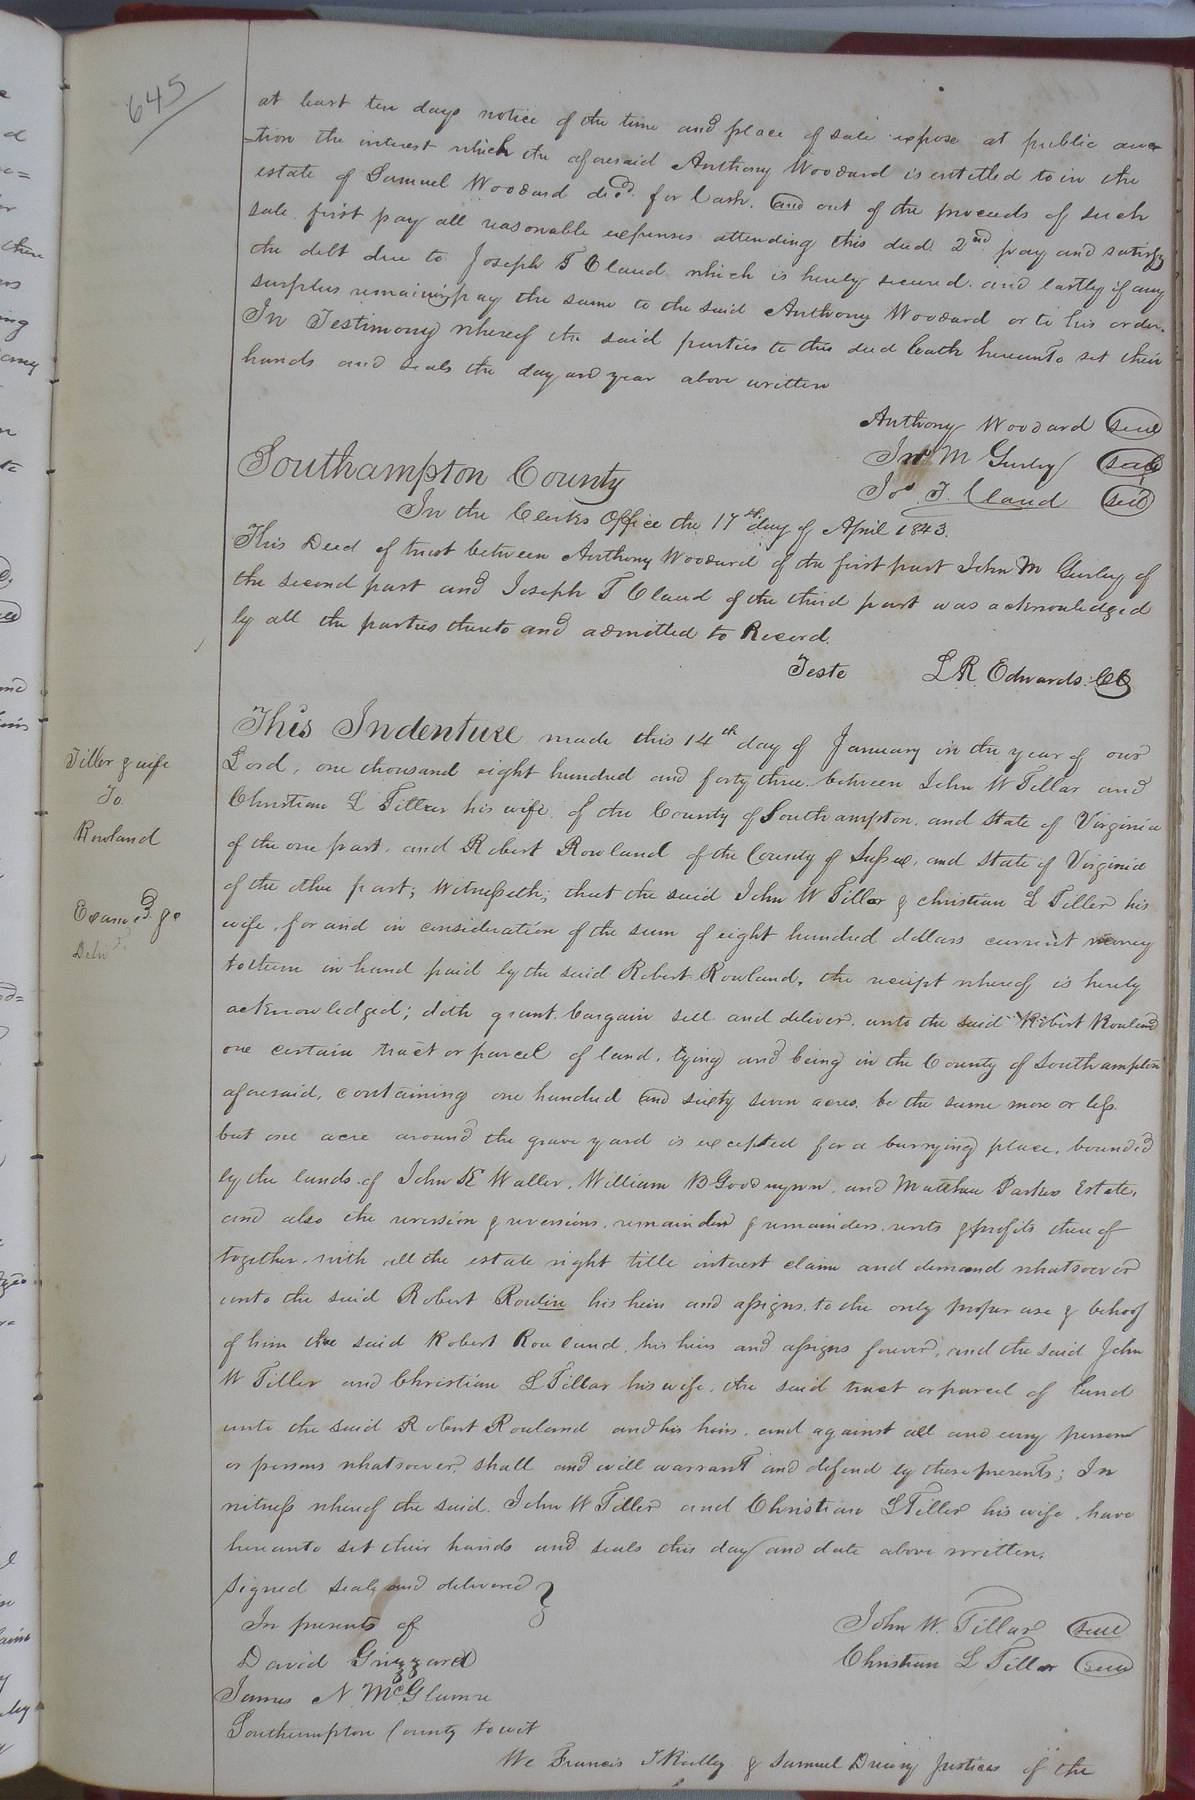 645
at least ten days notice of the time and place of sale expose at public auc
=tion the interest which the aforesaid Anthony Woodard is entitled to in the
estate of Samuel Woodard decd. for Cash. and out of the proceeds of such
sale first pay all reasonable expenses attending this deed 2nd pay and satisfy
the debt due to Joseph T Claud which is hereby secured. and lastly if any
surplus remaining pay the same to the said Anthony Woodard or to his order.
In Testimony whereof the said parties to this deed hath hereunto set their
hands and seals the day and year above written
Anthony Woodard seal
Jno M Gurley seal
Jos. T. Claud seal
Southampton County
In the Clerks Office the 17th day of April 1843.
This Deed of trust between Anthony Woodard of the first part John M Gurley of
the second part and Joseph T Claud of the third part was acknowledged
by all the parties thereto and admitted to Record.
Teste L R Edwards. CC
Tiller & wife
To
Rowland
Examed &
Deld
This Indenture made this 14th day of January in the year of our
Lord, one thousand eight hundred and forty three between John W Tillar and
Christian L Tillar his wife of the County of Southampton and State of Virginia
of the one part. and Robert Rowland of the County of Sussex, and State of Virginia
of the other part; Witnesseth; that the said John W Tillar & christian L Tiller his
wife, for and in consideration of the sum of eight hundred dollars current money
to them in hand paid by the said Robert Rowland, the receipt whereof is hereby
acknowledged; doth grant bargain sell and deliver unto the said Robert Rowland
one certain tract or parcel of land, lying and being in the County of Southampton
aforesaid, containing one hundred and sixty seven acres. be the same more or less
but one acre around the grave yard is excepted for a burrying place. bounded
by the lands of John E Waller, William B Goodwynn, and Matthew Parkes Estate,
and also the reversion & reversions, remainder & remainders, rents & profits thereof
together with all the estate right title interest claim and demand whatsoever
unto the said Robert Roulin his heirs and assigns to the only proper use & behoof
of him the said Robert Rowland, his heirs and assigns forever, and the said John
W Tiller and Christian L Tillar his wife, the said tract or parcel of land
unto the said Robert Rowland and his heirs, and against all and every person
or persons whatsoever, shall and will warrant and defend by these presents; In
witness whereof the said. John W Tiller and Christian L Tiller his wife, have
hereunto set their hands and seals this day and date above written.
Signed seald and delivered
In presents of
John W. Tillar seal
David Grizzard
Christian L Tillar seal
James N McGlamre
Southampton County to wit
We Francis T Ridley & Samuel Drewry Justices of the